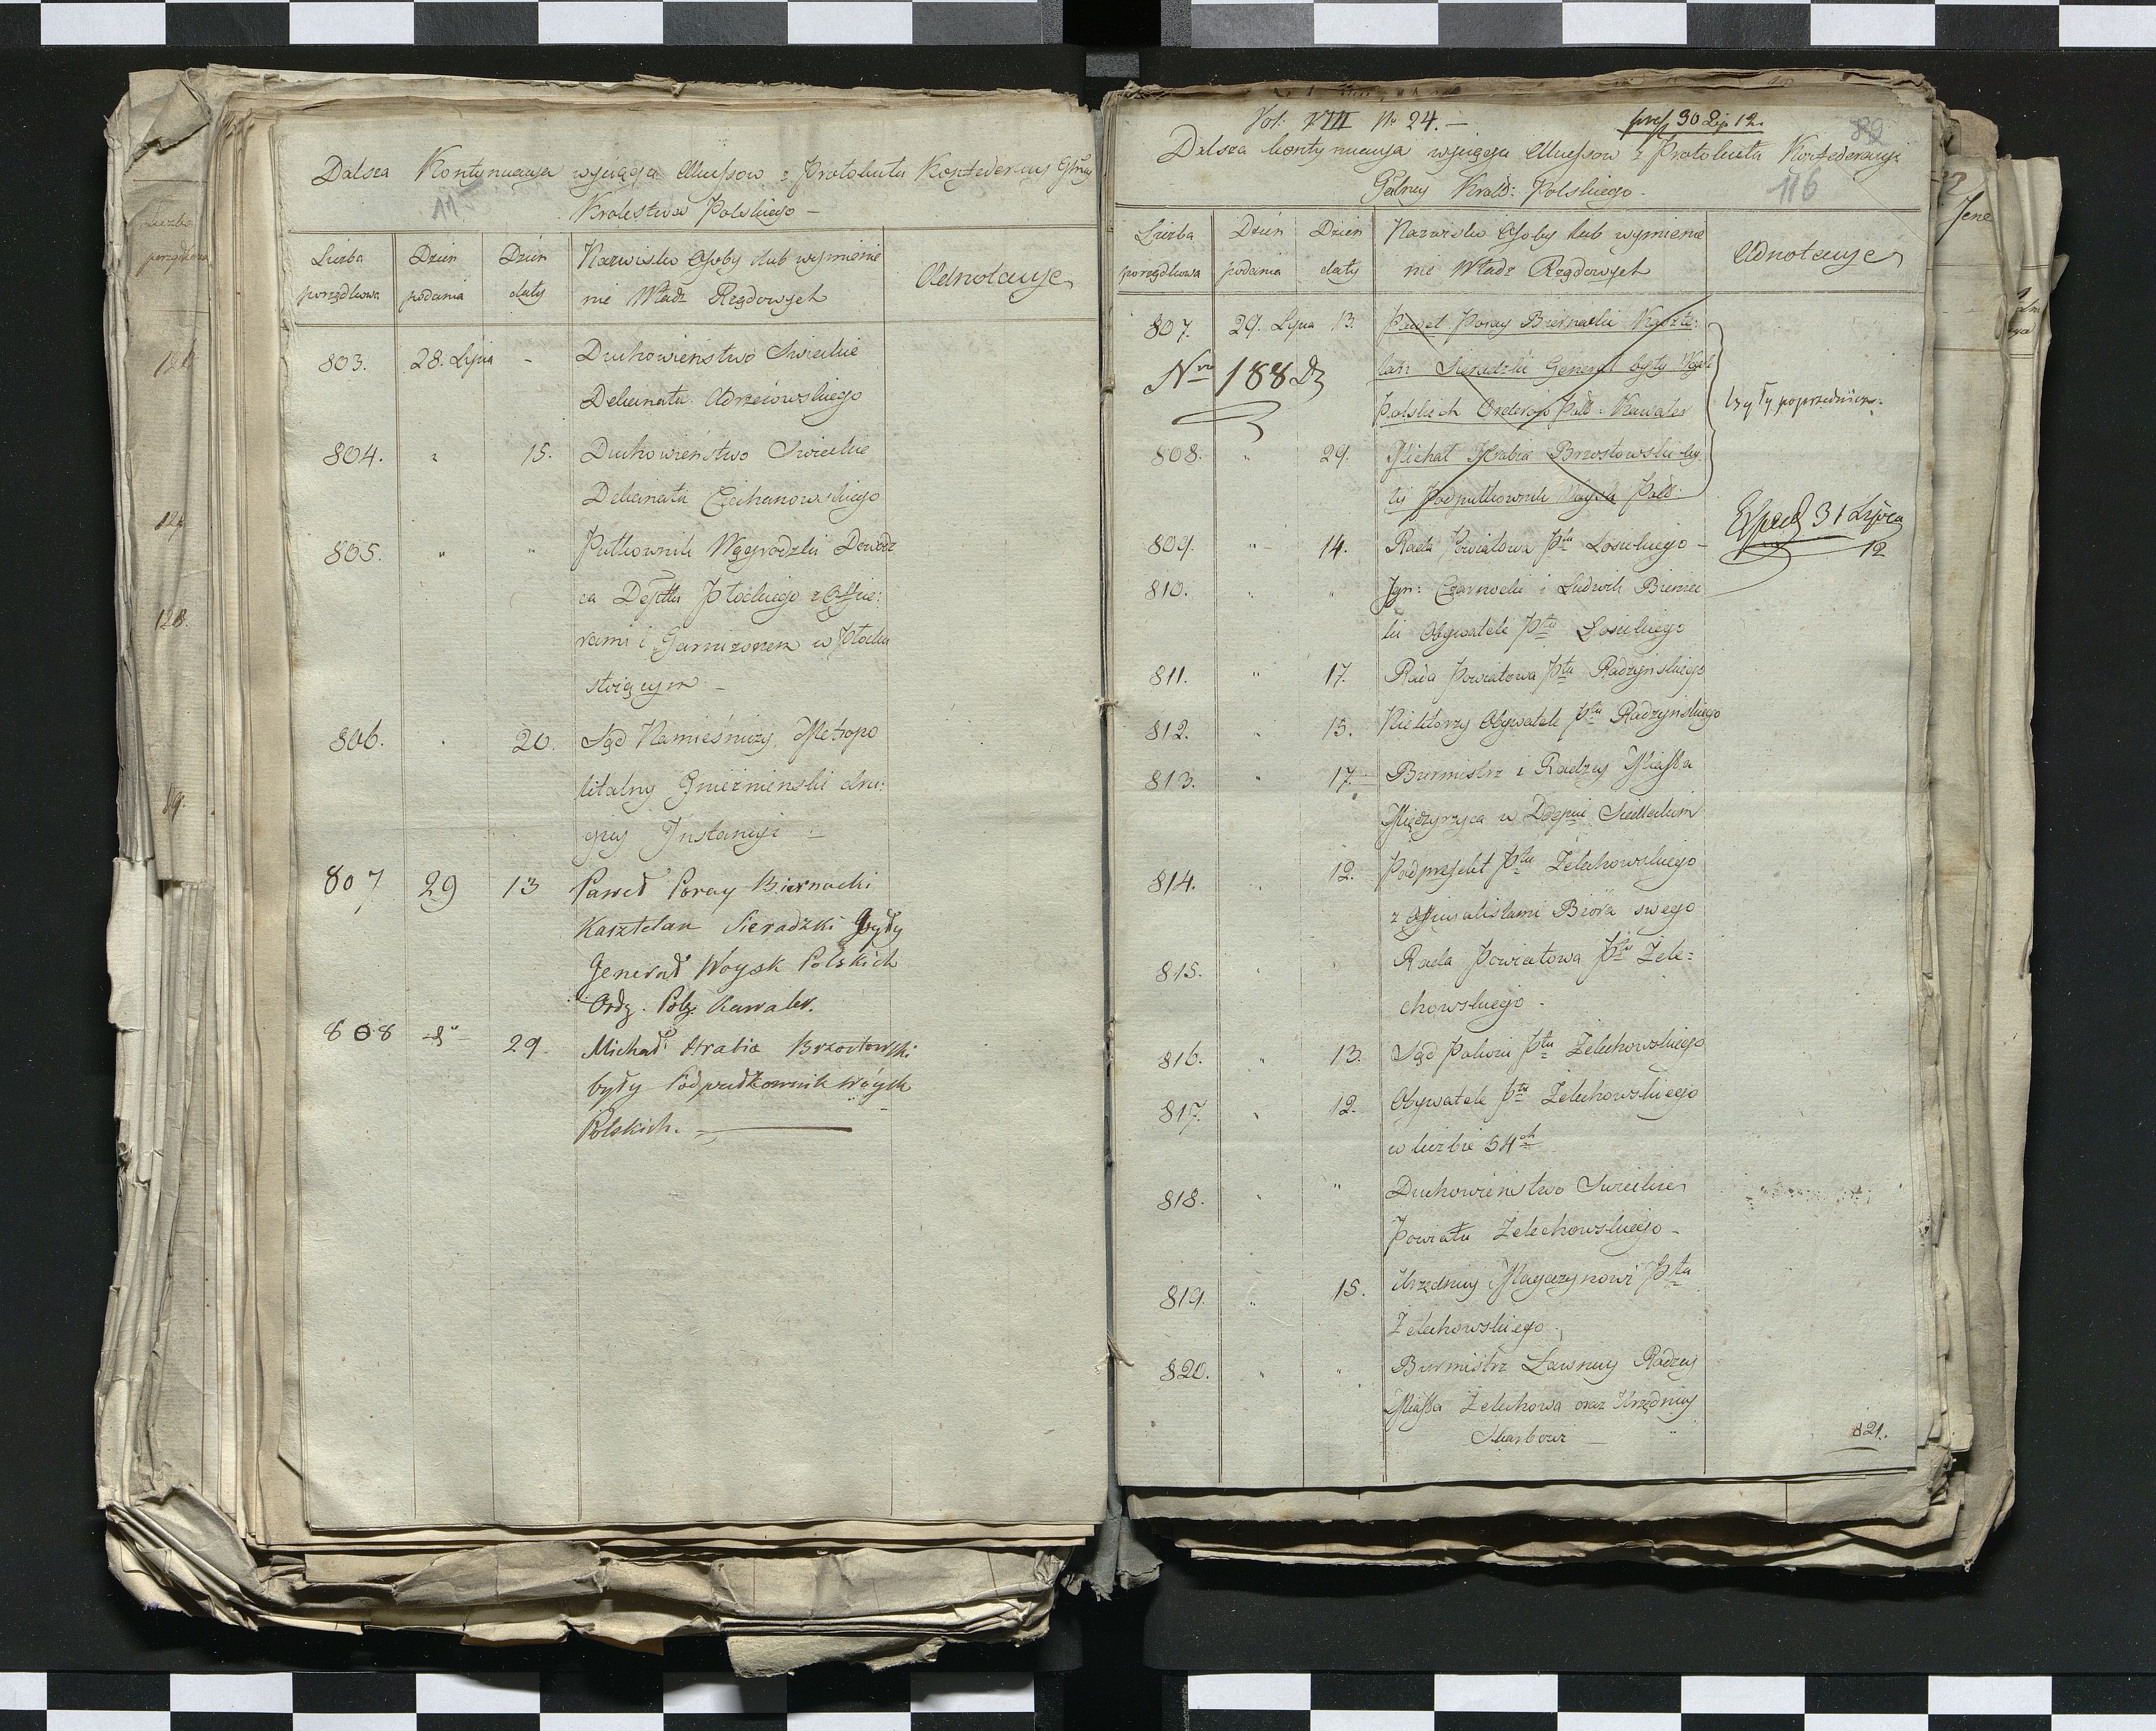 Dalsza Kontynuacya wyciągu Akcessow z Protokułu Konfederacyi Głney
Krolestwa Polskiego —
Liczba porządkowa
Dzień podania
Dzień daty
Nazwisko Osoby lub wymienie
nie Władz Rządowych
Adnotacye
803. 28. Lipca - Duchowieństwo Swieckie
Dekanatu Adrzeiowskiego
804. " 15. Duchowieństwo Swieckie
Dekanatu Ciechanowskiego
805. " " Pułkownik Węgrodzki Dowodz
ca Depttu Płockiego z Office:
rami i Garnizonem w Płocku
stoiącym —
806. " 20. Sąd Namieśniczy Metropo
litalny Gnieźnienski dru:
giey Instancyi —
807 29 13 Paweł Poray Biernacki
Kasztelan Sieradzki były
Generał Woysk Polskich
Ord. Pol. Kawaler.
808 29. Michał Hrabia Brzostowski
były Podpułkownik Woysk
Polskich. —
Vol: VII Nr 24. —
30 Lip 12.
89
116
Dalsza kontynuacya wyciągu Akcessow z Protokułu Konfederacyi
Gelney Króls: Polskiego —
Liczba porządkowa
Dzień podania
Dzień daty
Nazwisko Osoby lub wymienie
nie Władz Rządowych
Adnotacye
807. 29. Lipca 13. Paweł Poray Biernacki Kaszte:
lan Sieradzki Generał były Woysk
Polskich Orderow Pols: Kawaler
Nro 188
były poprzedniczo.
808. " 29. Michał Hrabia Brzostowski by:
ły Podpułkownik Woysk Pols:
Exped 31 Lipca
12
809. " 14. Rada Powiatowa Ptu Łosickiego —
810. " " Ign: Czarnocki i Ludwik Bieniec
ki Obywatele Ptu Łosickiego
811. " 17. Rada Powiatowa Ptu Radzynskiego
812. " 15. Niektorzy Obywatele Ptu Radzynskiego
813. " 17. Burmistrz i Radzcy Miasta
Międzyrzyca w Depcie Siedleckim
814. " 12. Podprefekt Ptu Żelechowskiego
z Officialistami Biora swego
815. " Rada Powiatowa Ptu Żele=
chowskiego -
816. " 13. Sąd Pokoiu Ptu Żelechowskiego
817. " 12. Obywatele Ptu Żelechowskiego
w liczbie 54ch
818. " " Duchowieństwo Swieckie
Powiatu Żelechowskiego -
819. " 15. Urzędnicy Magazynowi Ptu
Żelechowskiego.
820. " " Burmistrz Ławnicy Radzcy
Miasta Żelechowa oraz Urzędnicy
Skarbowi —
821.